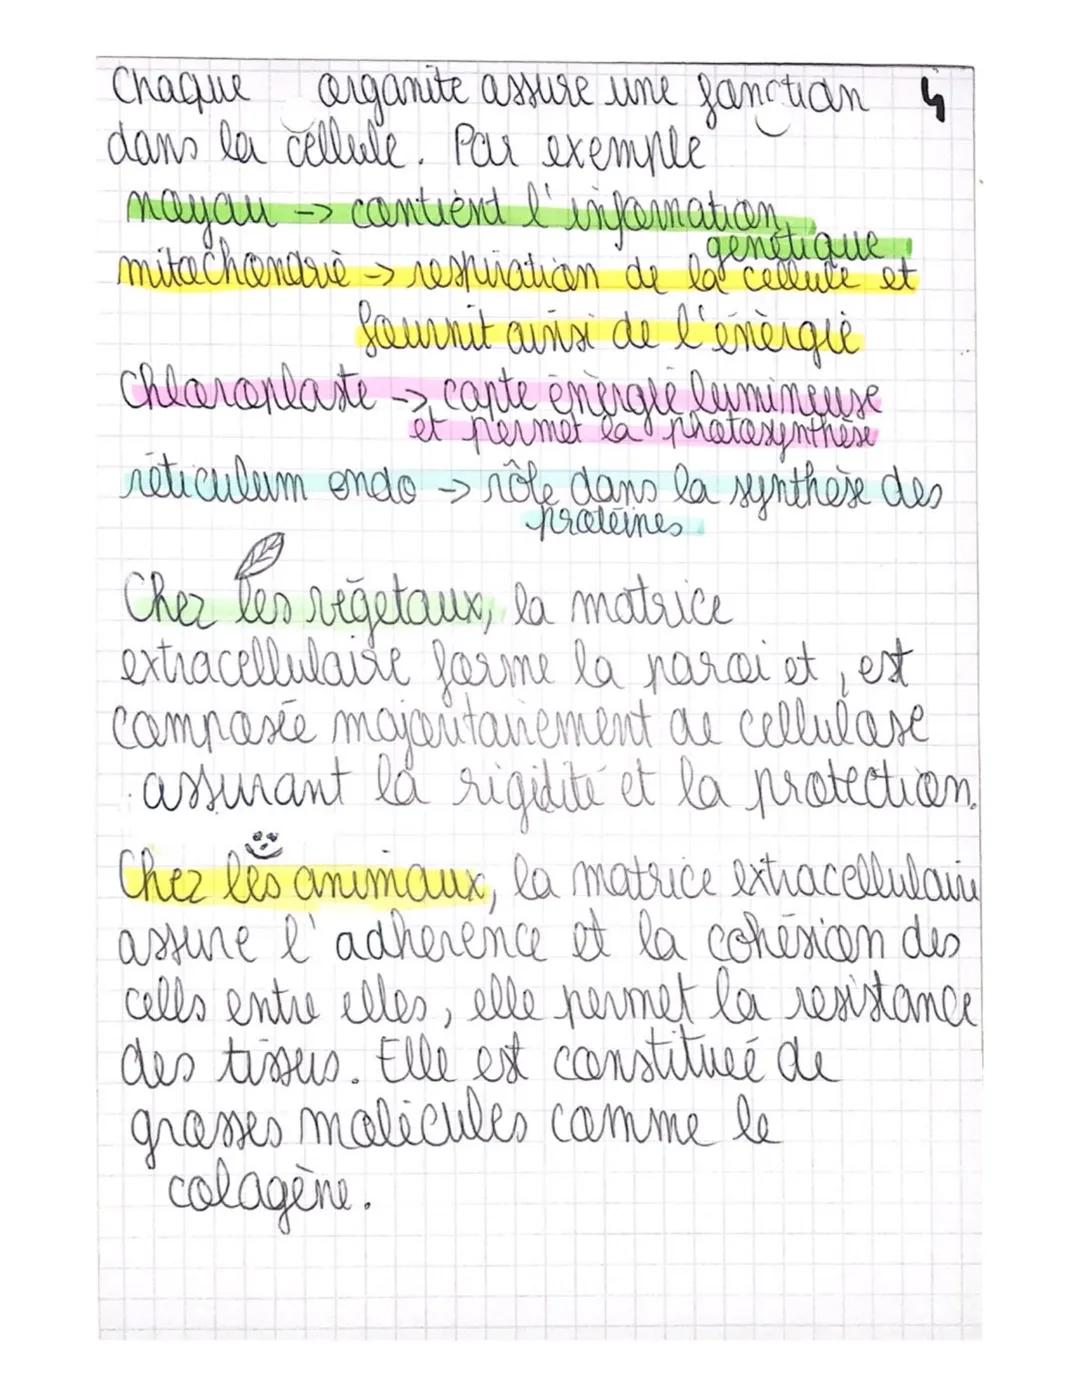 Chaque organite assure une fonction 4
dans la cellule. Par exemple
noyau -> contient l'information
génétique
mitochondrie -> respiration de la cellule et
fournit ainsi de l'énergie
Chloroplaste -> capte énergie lumineuse
et permet la photosynthèse
réticulum endo -> rôle dans la synthèse des
protéines
Chez les végétaux, la matrice
extracellulaire forme la paroi et, est
composée majoritairement de cellulose
assurant la rigidité et la protection.
Chez les animaux, la matrice extracellulaire
assure l'adherence et la cohésion des
cells entre elles, elle permet la resistance
des tissus. Elle est constitueé de
grosses molécules comme le
colagène.